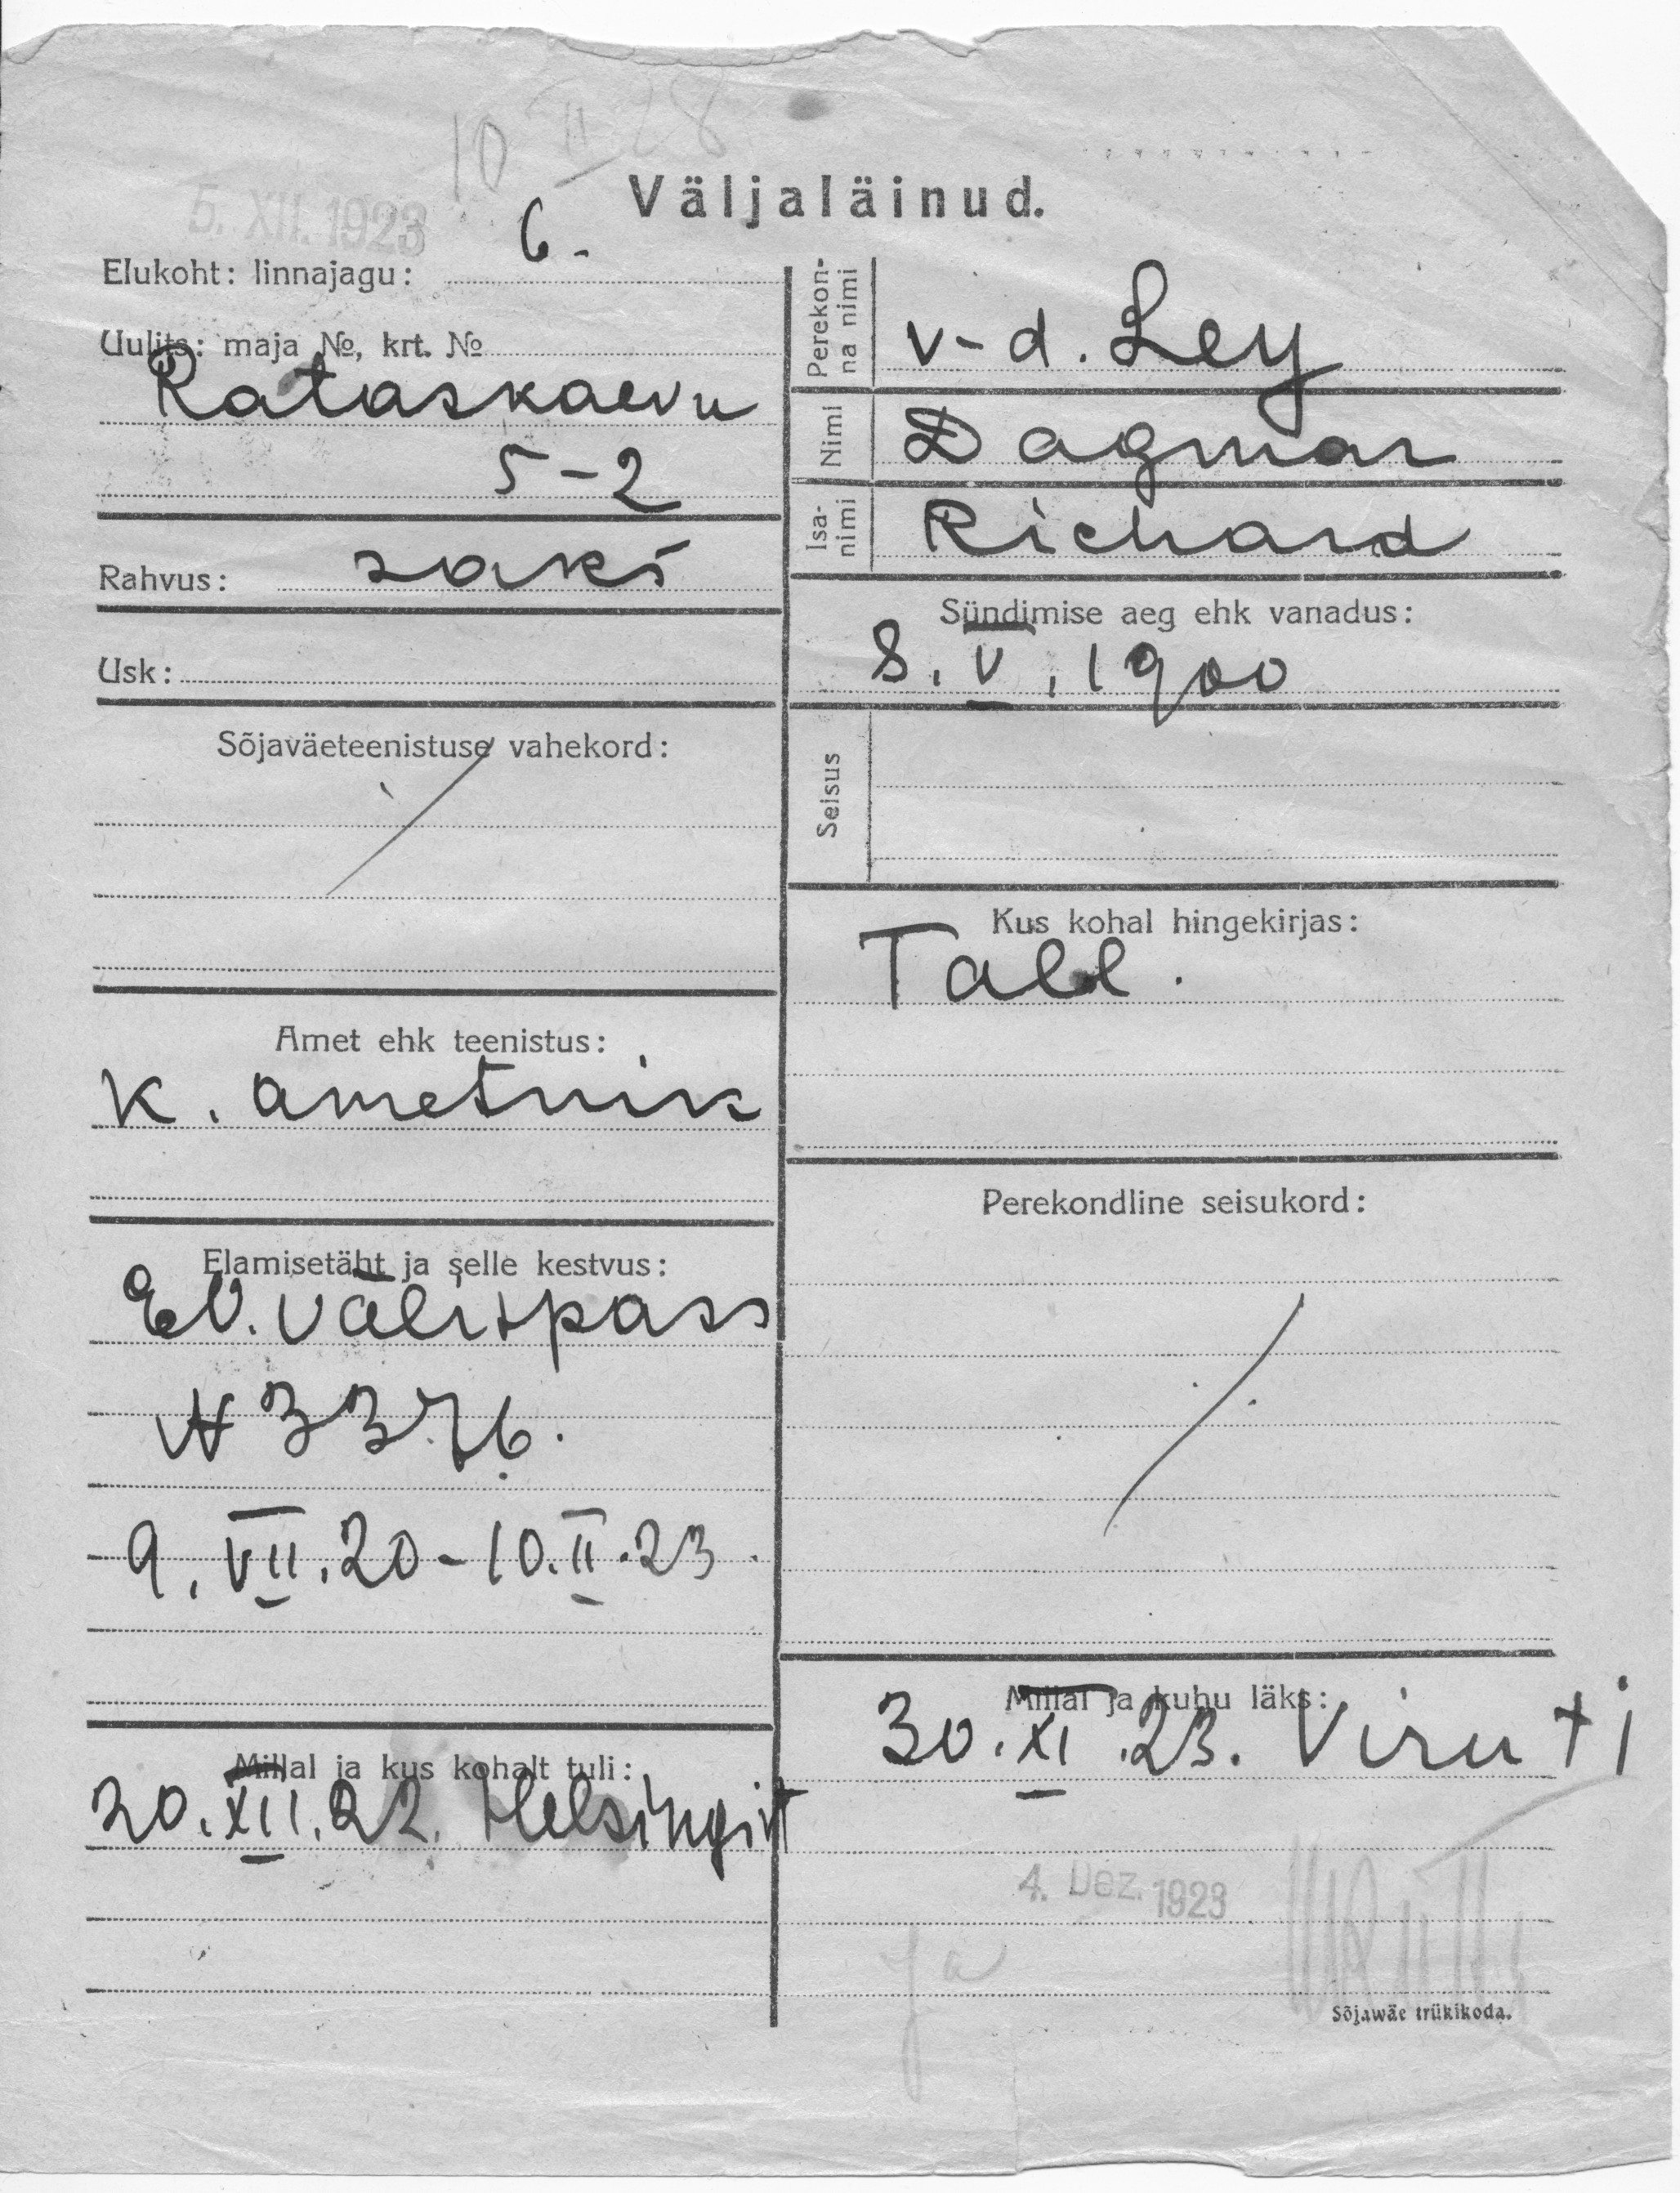 10 II 28
Väljaläinud.
5. XII. 1923
Elukoht: linnajagu: 6.-
Uulits: maja №, krt. №
Rataskaevu
5-2
Rahvus: saks
Usk:
Sõjaväeteenistuse vahekord:
Amet ehk teenistus:
K. ametnik
Elamisetäht ja selle kestvus:
E.V. välispass
N 3376.
9. VII. 20 - 10. II. 23.
Millal ja kus kohalt tuli:
20. XII. 22. Helsingist
Perekonna nimi
v-d. Ley
Nimi
Dagmar
Isanimi
Richard
Sündimise aeg ehk vanadus:
8. V. 1900
Seisus
Kus kohal hingekirjas:
Tall.
Perekondline seisukord:
Millal ja kuhu läks:
30. XI. 23. Viru t i
4. Dez. 1923
ja
Sõjawäe trükikoda.